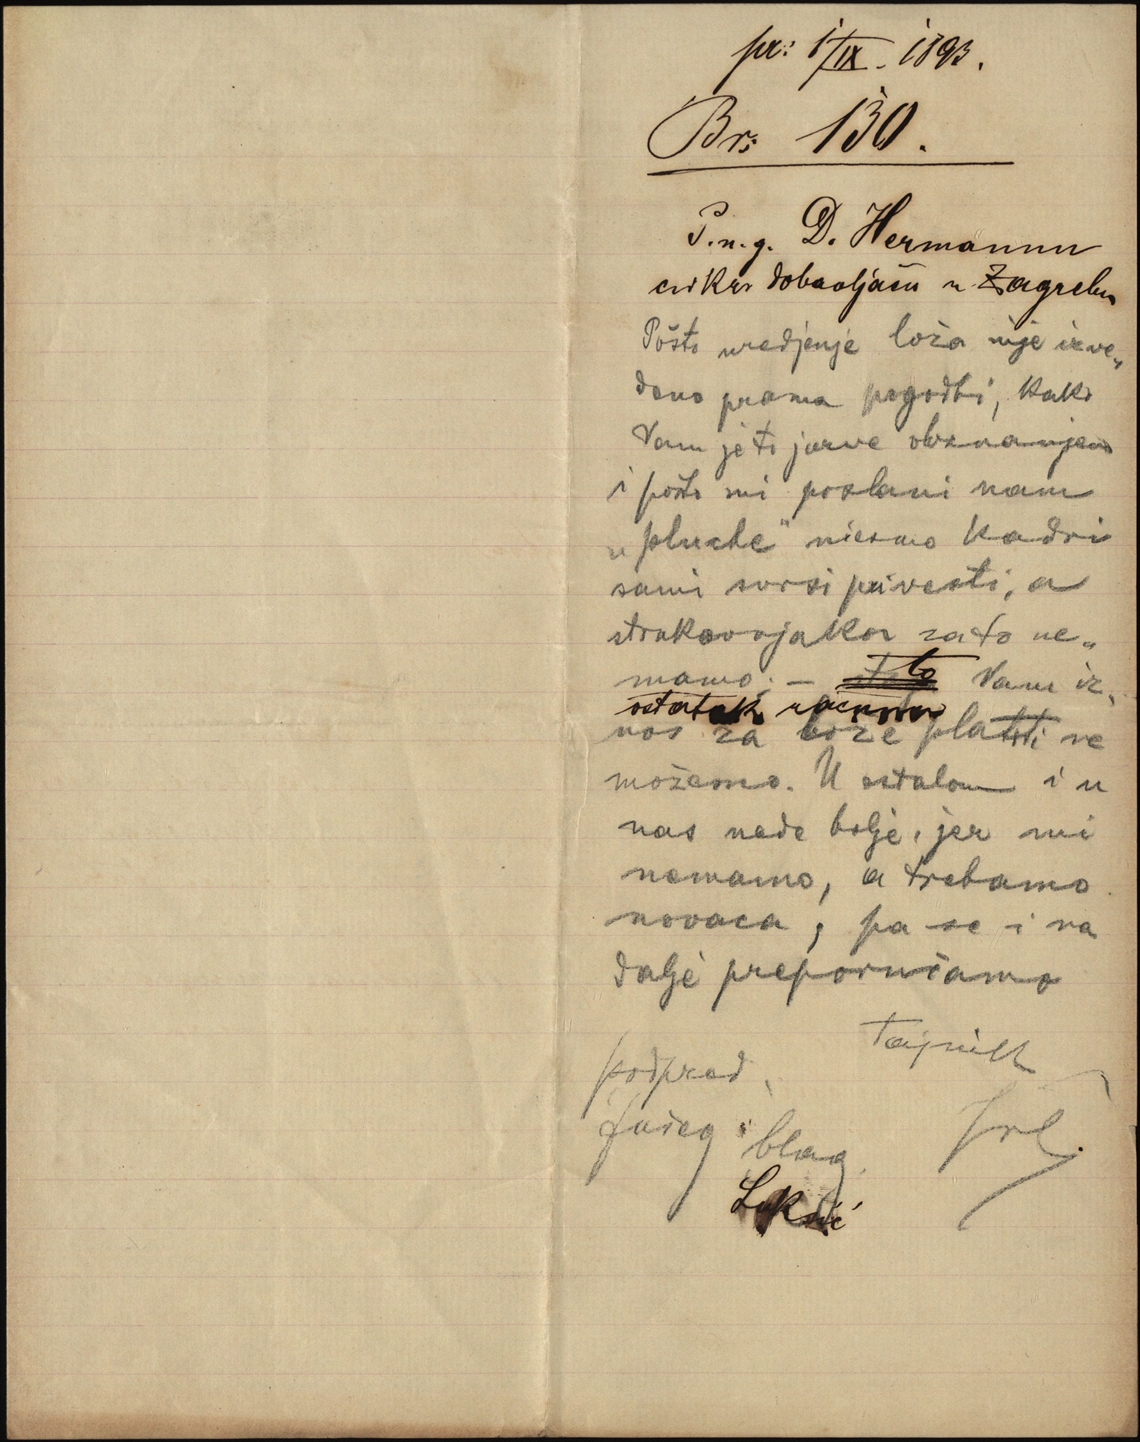 pr: 1/IX. 1893.
Br: 130.
P. n. g. D. Hermannu
dobavljaču u Zagrebu
Pošto uredjenje loža nije izve„
deno prama pogodbi, kako
Vam je to jurve obznanjeno
i pošto mi poslani nam
„pluche" niesmo kadri
sami svrsi privesti, a
strukovnjaka zato ne„
mamo; — to Vam iz„
ostatak računa
nos za lože platiti ne
možemo. U ostalom i u
nas neđe bolje, jer mi
nemamo, a trebamo
novaca, pa se i na
dalje preporučamo
Tajnik
podpred.
blag.